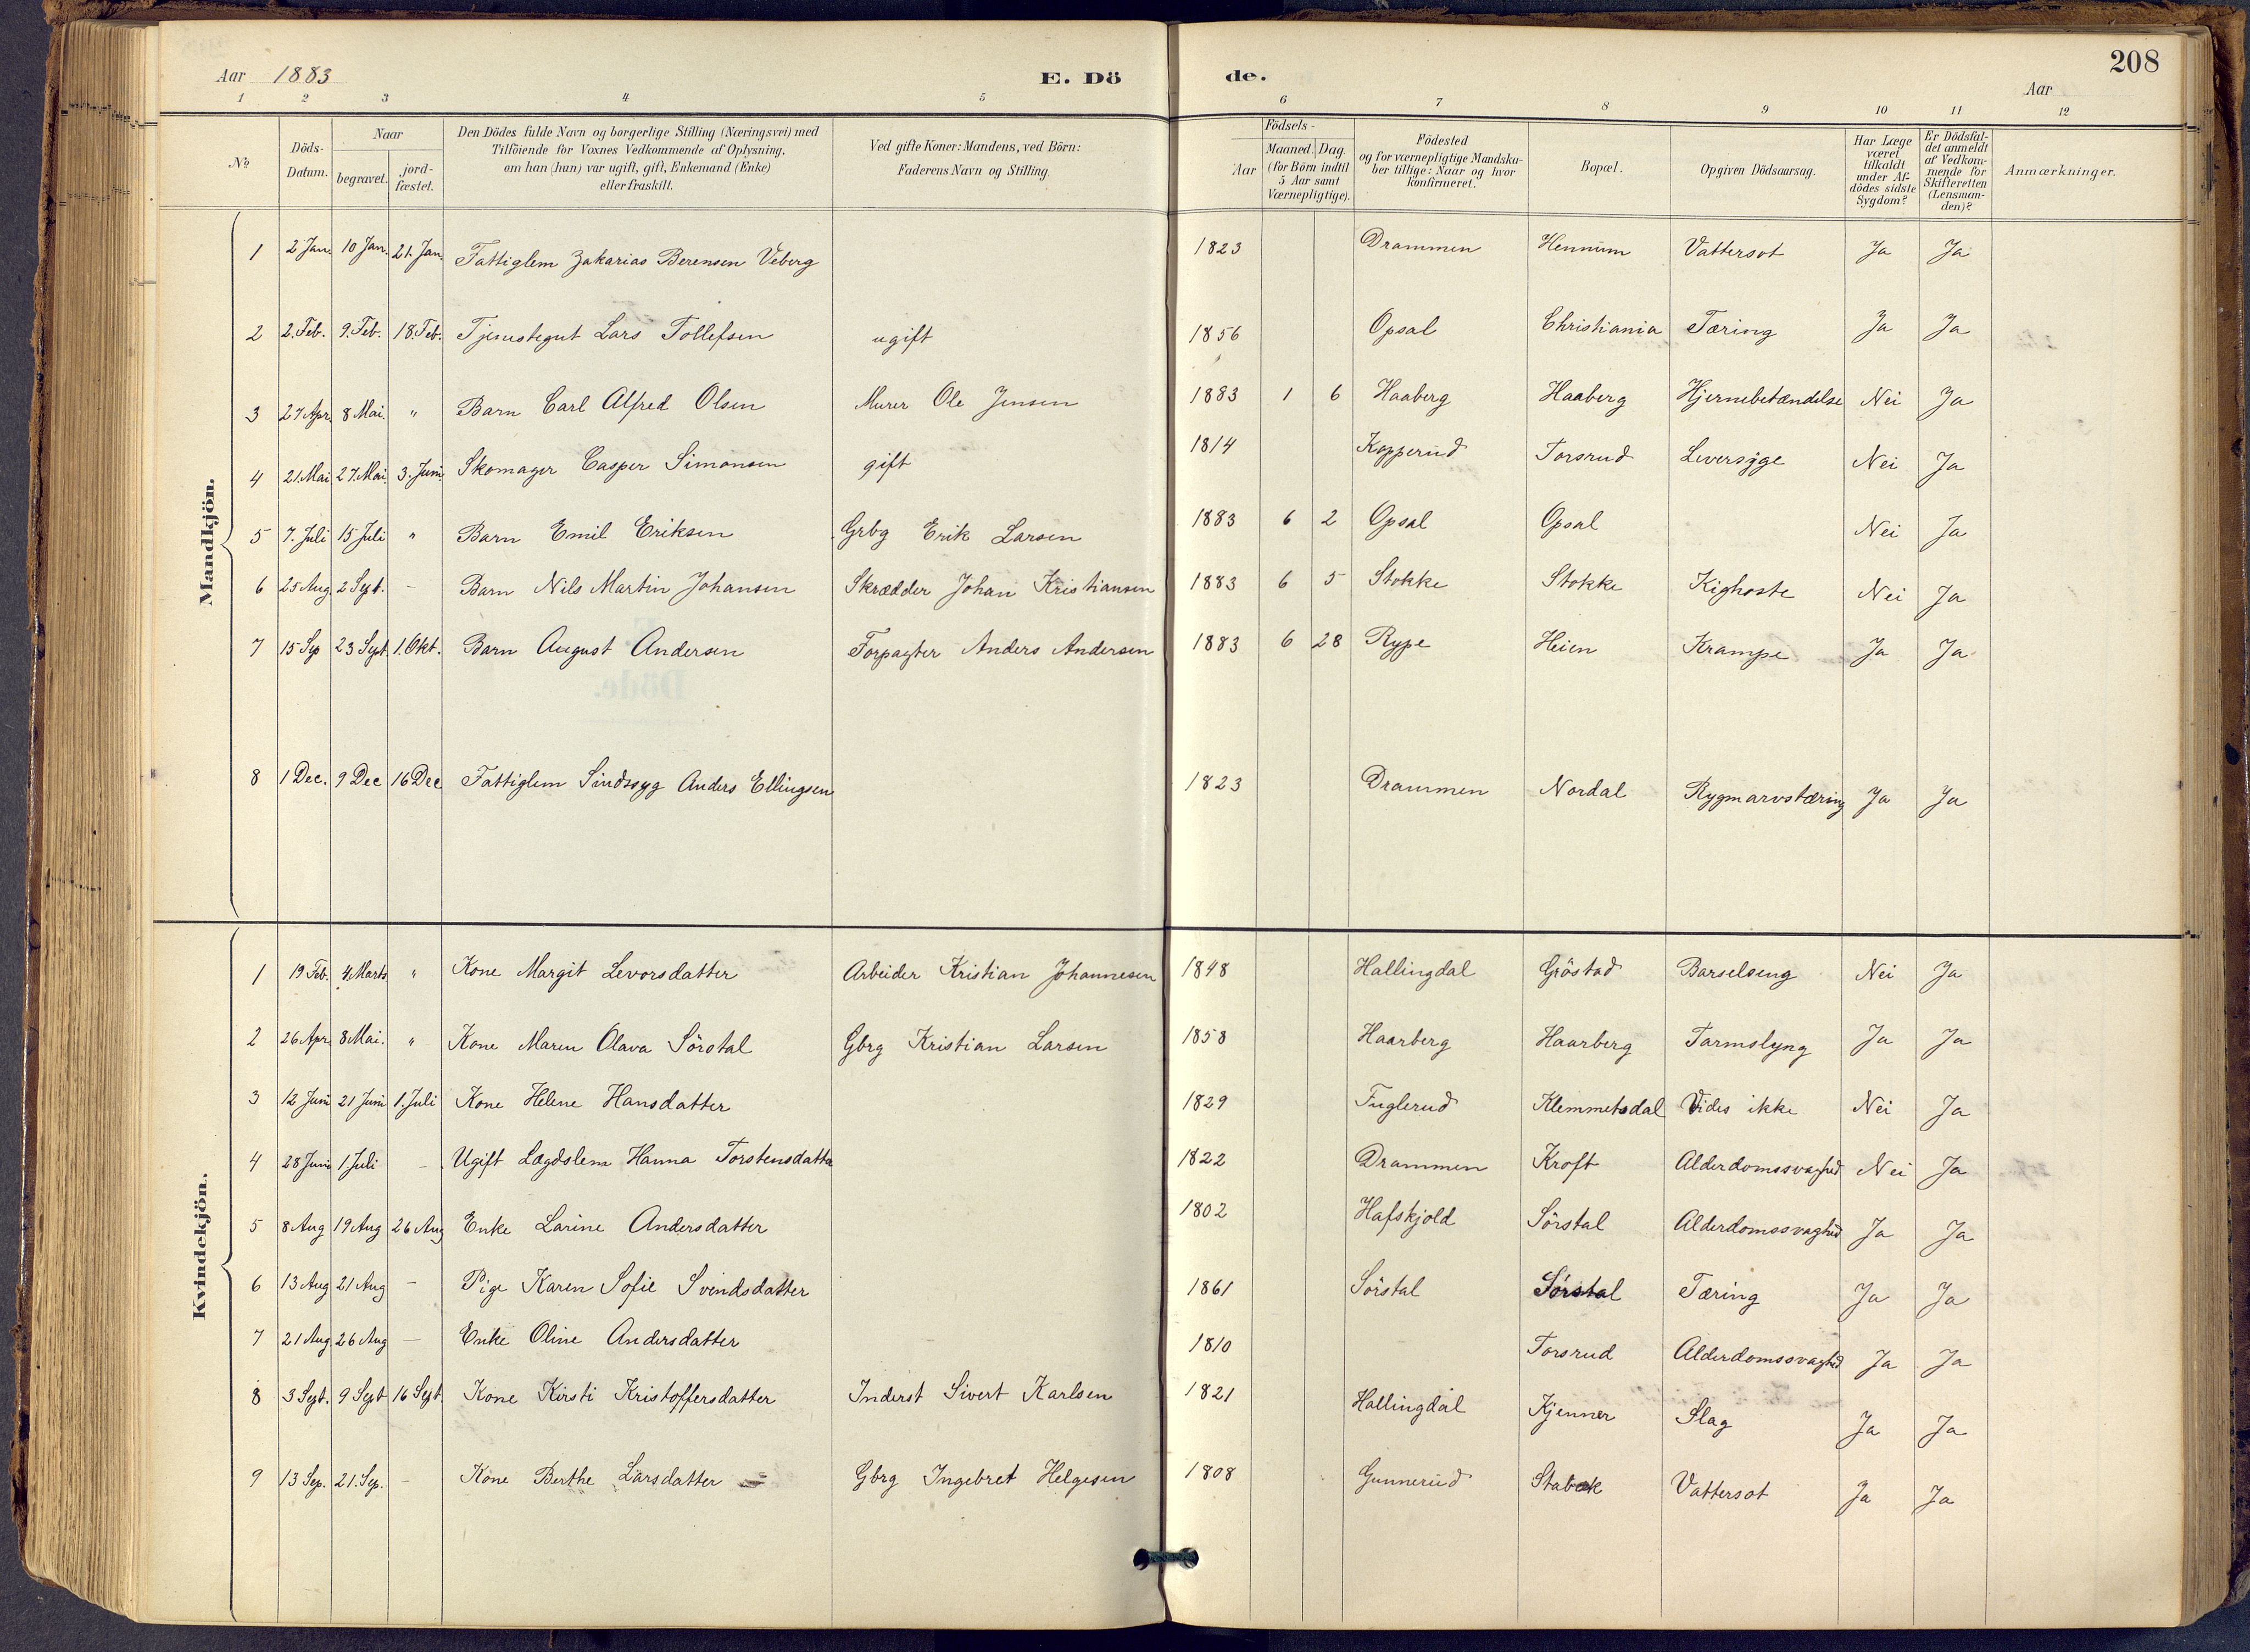 Aar 1883 E. Dö de. Aar 208
1 2 3 4 5 6 7 8 9 10 11 12
№ Döds-Datum. Naar begravet. jord-fæstet. Den Dödes fulde Navn og borgerlige Stilling (Næringsvei) med Tilföiende for Voxnes Vedkommende af Oplysning. om han (hun) var ugift, gift, Enkemand (Enke) eller fraskilt. Ved gifte Koner: Mandens, ved Börn: Faderens Navn og Stilling. Födsels- Aar Maaned. Dag. (for Börn indtil 5 Aar samt Værnepligtige). Födested og for værnepligtige Mandska-ber tillige: Naar og hvor konfirmeret. Bopæl. Opgiven Dödsaarsag. Har Læge været tilkaldt under Af-dödes sidste Sygdom? Er Dödsfal-det anmeldt af Vedkom-mende for Skifteretten (Lensman-den)? Anmærkninger.
Mandkjön.
1 2 Jan. 10 Jan. 21. Jan. Fattiglem Zakarias Berensen Veberg 1823 Drammen Hennum Vattersot Ja Ja
2 2. Feb. 9. Feb. 18. Feb. Tjenestegut Lars Tollefsen ugift 1856 Opsal Christiania Tæring Ja Ja
3 27 Apr. 8 Mai. " Barn Carl Alfred Olsen Murer Ole Jensen 1883 1 6 Haaberg Haaberg Hjernebetændelse Nei Ja
4 21. Mai 27. Mai. 3. Juni Skomager Casper Simonsen gift 1814 Kopperud Torsrud Leversyge Nei Ja
5 7. Juli 15 Juli " Barn Emil Eriksen Grbg Erik Larsen 1883 6 2 Opsal Opsal Nei Ja
6 25 Aug. 2 Sept. - Barn Nils Martin Johansen Skrædder Johan Kristiansen 1883 6 5 Stokke Stokke Kighoste Nei Ja
7 15 Sep 23 Sept. 1. Okt. Barn August Andersen Forpagter Anders Andersen 1883 6 28 Rype Heien Krampe Ja Ja
8 1 Dec. 9 Dec 16 Dec Fattiglem Sindssyg Anders Ellingsen 1823 Drammen Nordal Rygmarvstæring Ja Ja
Kvindekjön.
1 19 Feb. 4 Marts " Kone Margit Levorsdatter Arbeider Kristian Johannesen 1848 Hallingdal Gröstad Barselseng Nei Ja
2 26 Apr. 8 Mai. " Kone Maren Olava Sörstal Gbrg Kristian Larsen 1858 Haarberg Haarberg Tarmslyng Ja Ja
3 12 Juni 21 Juni 1. Juli Kone Helene Hansdatter 1829 Fuglerud Klemmetsdal Vides ikke Nei Ja
4 28 Juni 1. Juli - Ugift Lægdslem Hanna Torstensdatter 1822 Drammen Kroft Alderdomssvaghed Nei Ja
5 8 Aug 19 Aug 26 Aug Enke Larine Andersdatter 1802 Hafskjold Sörstal Alderdomssvaghed Ja Ja
6 13 Aug 21 Aug - Pige Karen Sofie Svendsdatter 1861 Sörstal Sörstal Tæring Ja Ja
7 21 Aug. 26 Aug - Enke Oline Andersdatter 1810 Torsrud Alderdomssvaghed Ja Ja
8 3 Sept. 9 Sept 16 Sept. Kone Kirsti Kristoffersdatter Inderst Sivert Karlsen 1821 Hallingdal Kjenner Slag Ja Ja
9 13 Sep. 21. Sep. - Kone Berthe Larsdatter Gbrg Ingebret Helgesen 1808 Gunnerud Stabæk Vattersot Ja Ja